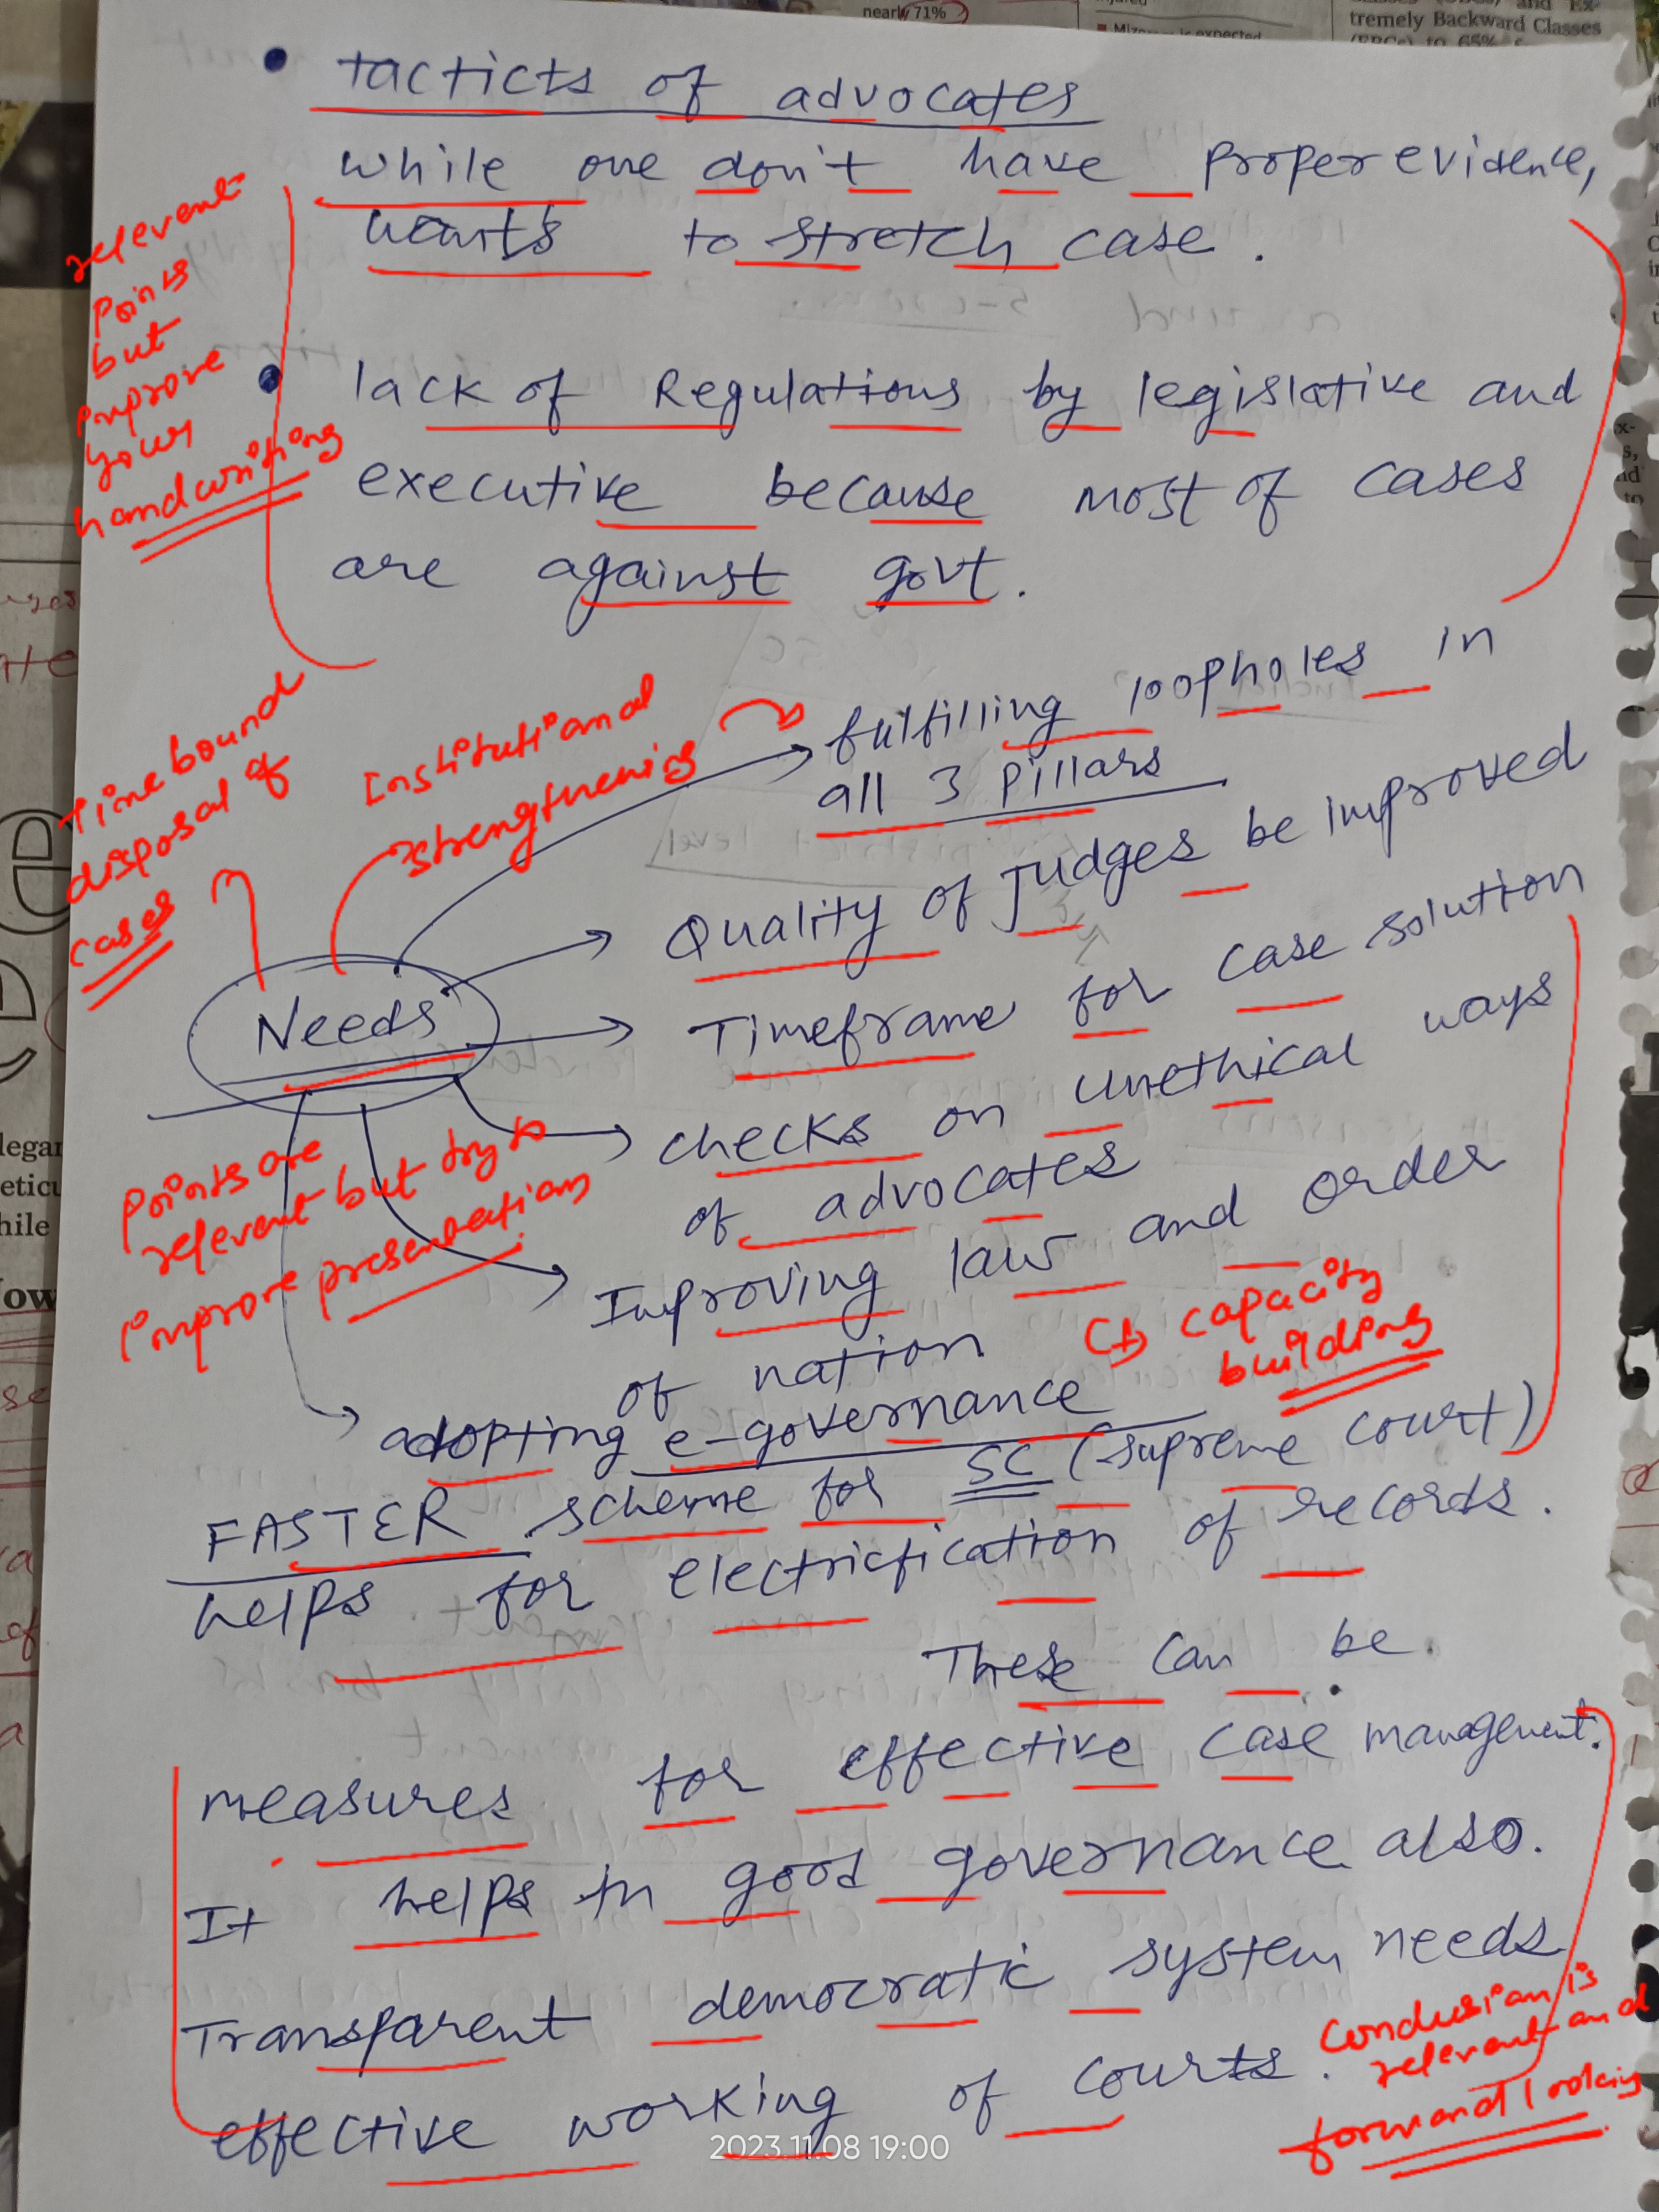 nearly 71%
tremely Backward Classes
tacticts of advocates
while one don't have proper evidence,
wants to stretch case.
relevent
points
but
improve
your
handwriting
lack of Regulations by legislative and
executive because most of cases
are against govt.
Time bound
disposal of
cases
Institutional
strengthening
fulfilling loopholes in
all 3 pillars
Quality of Judges be improved
Needs
Timeframe for case solution
checks on unethical ways
of advocates
Points are
relevent but try to
improve presentation
Improving law and order
of nation
capacity
building
adopting e-governance
FASTER scheme for SC (supreme court)
helps for electricfication of records.
These can be
measures for effective case management.
It helps in good governance also.
Transparent democratic system needs
effective working of courts.
Conclusion is
relevent and
forward looking
2023.11.08 19:00